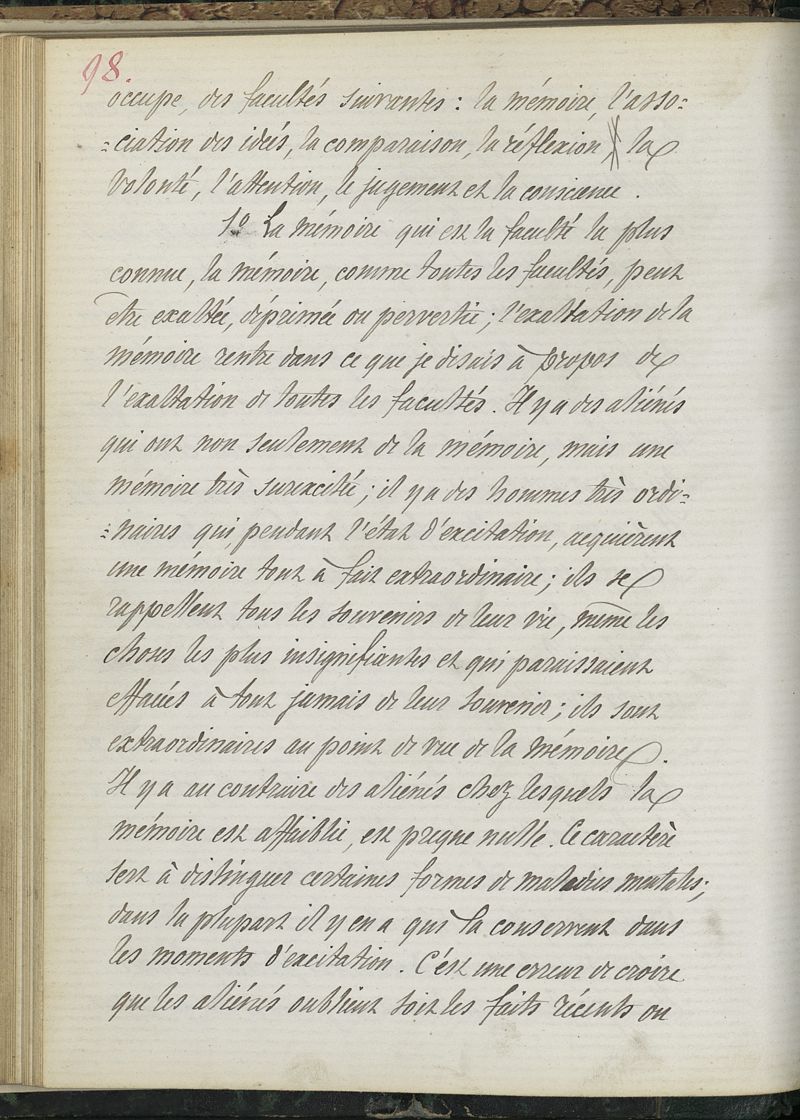 98.
occupe, des facultés suivantes : la mémoire, l'asso-
-ciation des idées, la comparaison, la réflexion, la
volonté, l'attention, le jugement et la conscience.
1º La mémoire qui est la faculté la plus
connue, la mémoire, comme toutes les facultés, peut
être exaltée, déprimée ou pervertie; l'exaltation de la
mémoire rentre dans ce que je disais à propos de
l'exaltation de toutes les facultés. Il y a des aliénés
qui ont non seulement de la mémoire, mais une
mémoire très surexcitée; il y a des hommes très ordi-
-naires qui pendant l'état d'excitation, acquièrent
une mémoire tout à fait extraordinaire; ils se
rappellent tous les souvenirs de leur vie, même les
choses les plus insignifiantes et qui paraissaient
effacées à tout jamais de leur souvenir; ils sont
extraordinaires au point de vue de la mémoire.
Il y a au contraire des aliénés chez lesquels la
mémoire est affaiblie, est presque nulle. Ce caractère
sert à distinguer certaines formes de maladies mentales;
dans la plupart il y en a qui la conservent dans
les moments d'excitation. C'est une erreur de croire
que les aliénés oublient soit les faits récents ou